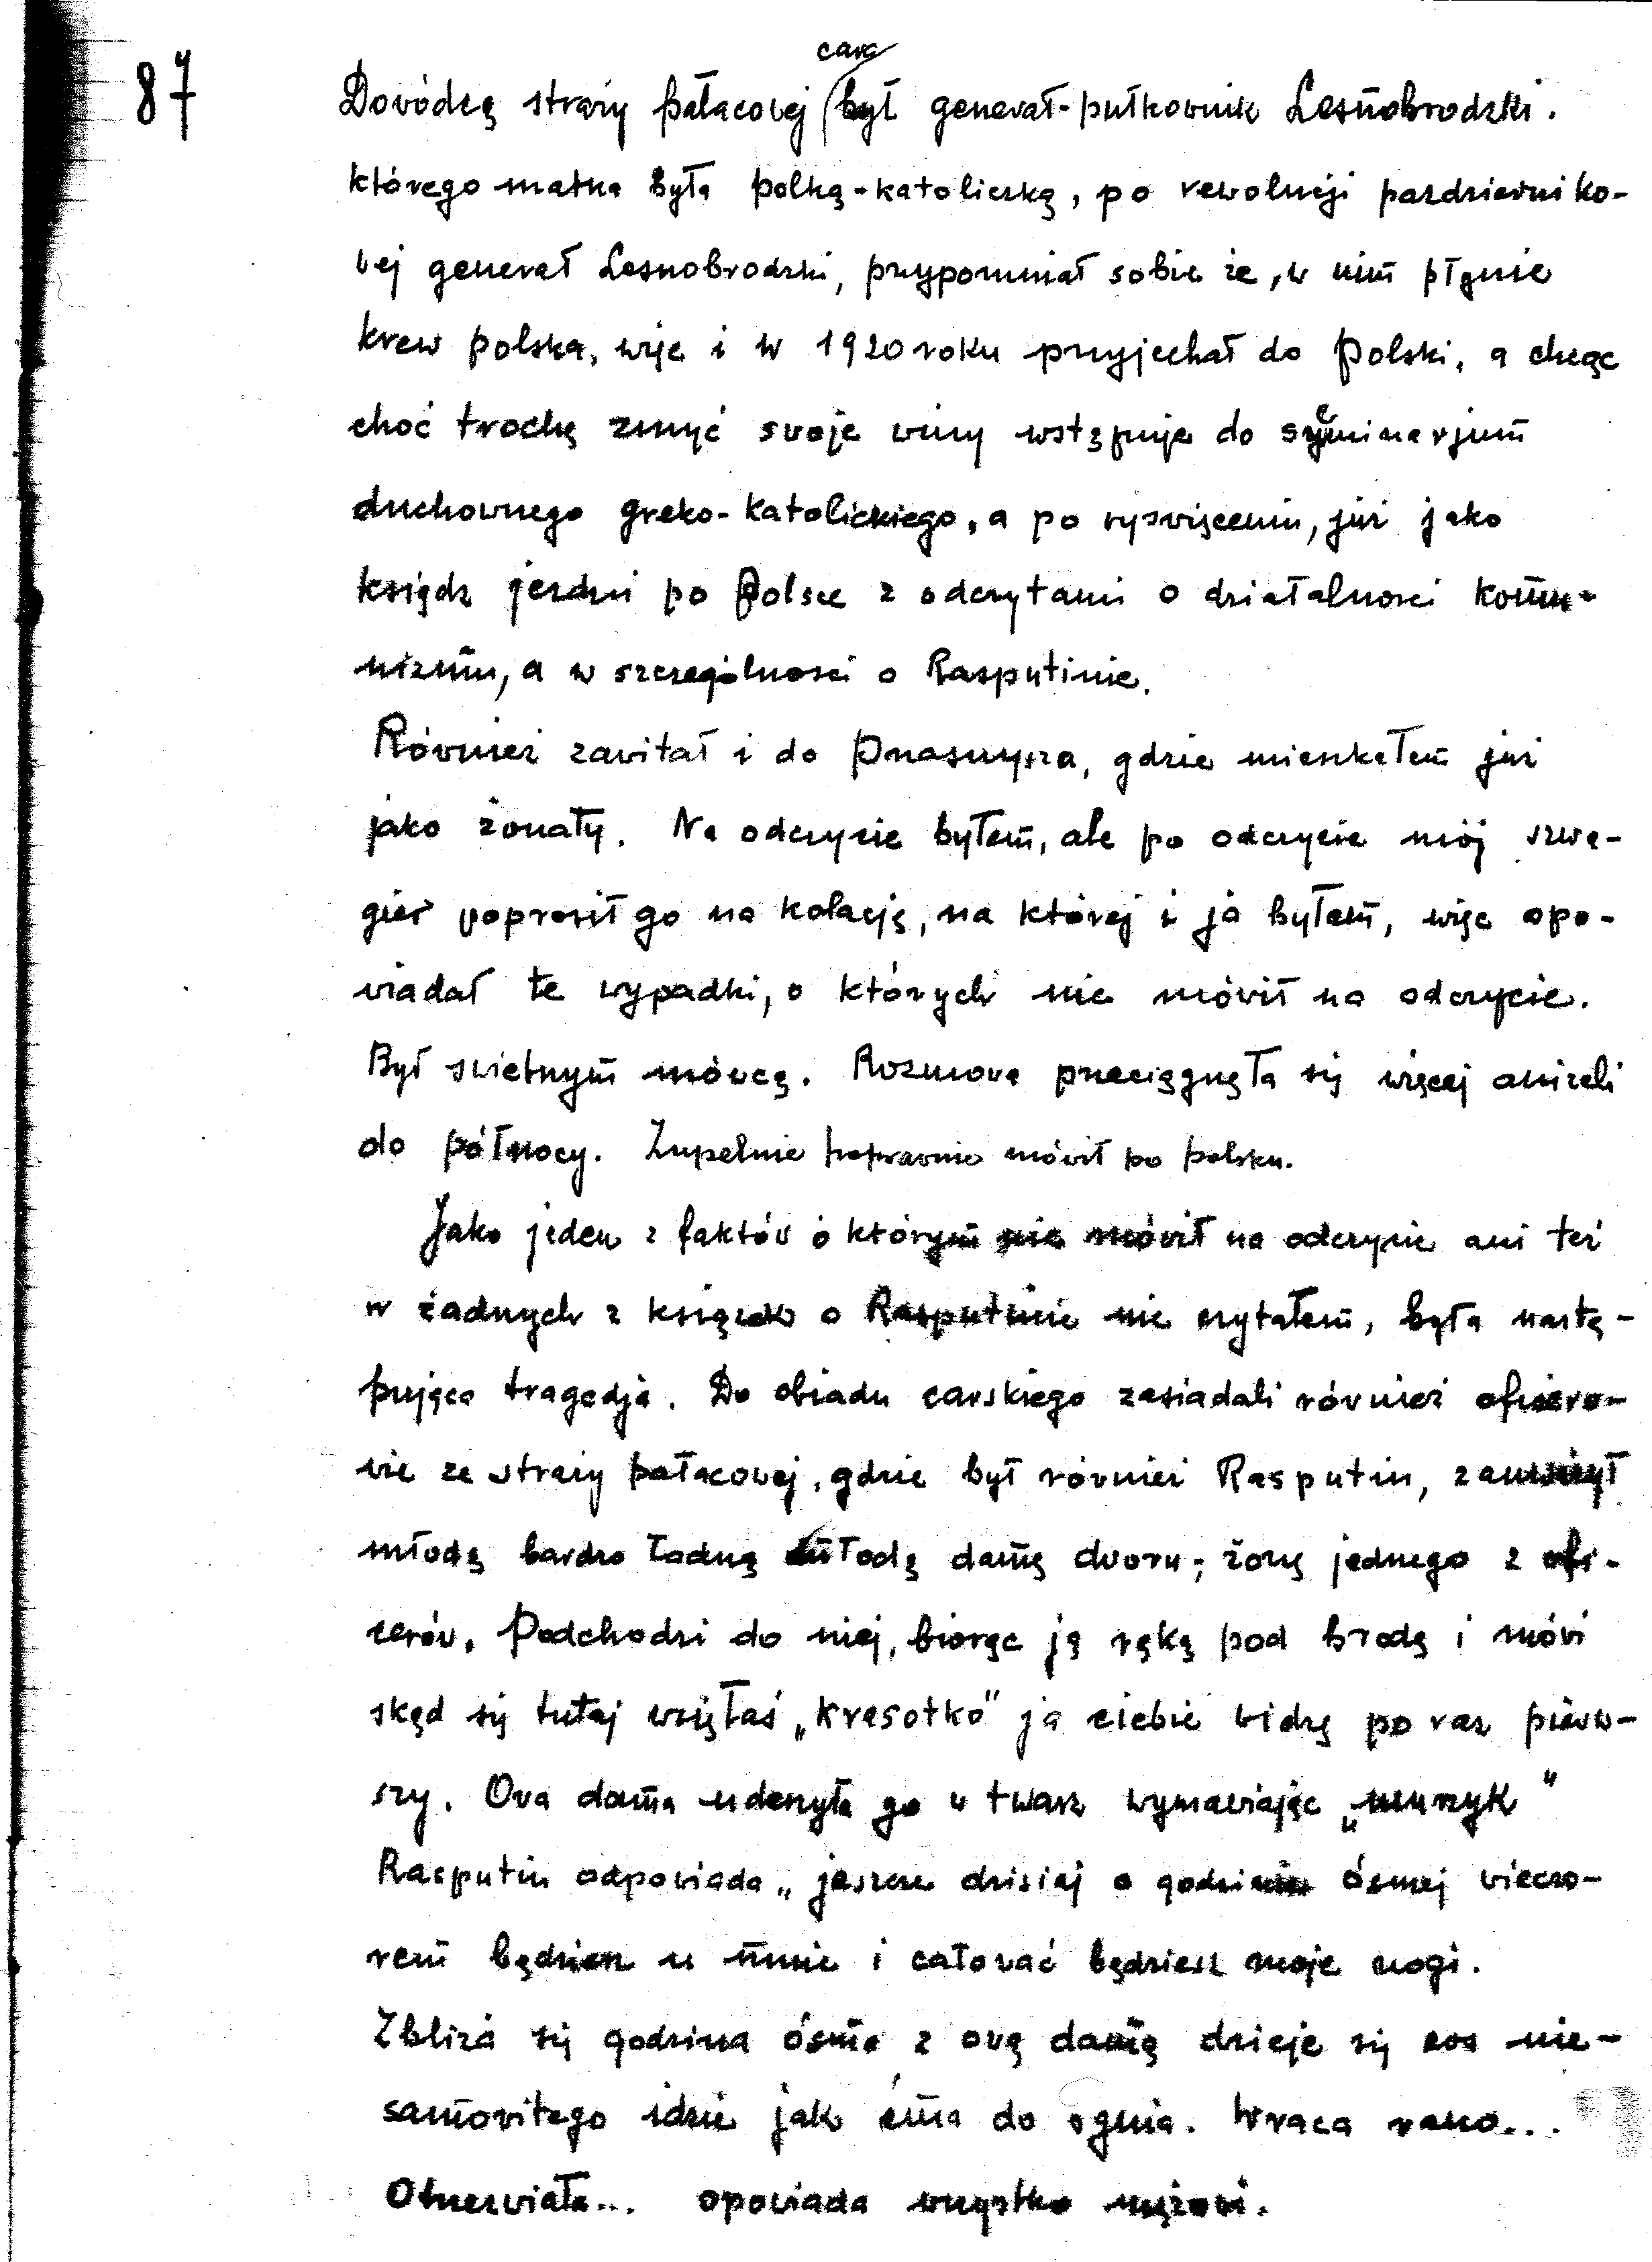 cara
87 Dowódcą straży pałacowej był generał-pułkownik Lesnobrodzki.
którego matka była polką-katoliczką, po rewolucji pazdzierniko-
wej generał Lesnobrodzki, przypomniał sobie że, w nim płynie
krew polska, więc i w 1920 roku przyjechał do Polski, a chcąc
choć trochę zmyć swoje winy wstępuje do seminarjum
duchownego greko-katolickiego, a po wyswięceniu, już jako
ksiądz jezdzi po Polsce z odczytami o działalnosci komu-
nizmu, a w szczególnosci o Rasputinie.
Również zawitał i do Przasnysza, gdzie mieszkałem już
jako żonaty. Na odczycie byłem, ale po odczycie mój szwa-
gier poprosił go na kolację, na której i ja byłem, więc opo-
wiadał te wypadki, o których nie mówił na odczycie.
Był swietnym mówcą. Rozmowa przeciągnęła się więcej aniżeli
do północy. Zupełnie poprawnie mówił po polsku.
Jako jeden z faktów o którym nie mówił na odczycie ani też
w żadnych z książek o Rasputinie nie czytałem, była nastę-
pująca tragedja. Do obiadu carskiego zasiadali również ofiicero-
wie ze straży pałacowej, gdzie był również Rasputin, zauważył
młodą bardzo ładną młodą damę dworu; żonę jednego z ofi-
cerów. Podchodzi do niej, biorąc ją ręką pod brodę i mówi
skąd się tutaj wzięłaś „krasotko" ja ciebie widzę po raz pierw-
szy. Owa dama uderzyła go w twarz wymawiając „mużyk"
Rasputin odpowiada „jeszcze dzisiaj o godzinie ósmej wieczo-
rem będziesz u mnie i całować będziesz moje nogi.
Zbliża się godzina ósma z ową damą dzieje się cos nie-
samowitego idzie jak ćma do ognia. Wraca rano...
Otrzezwiała... opowiada wszystko mężowi.